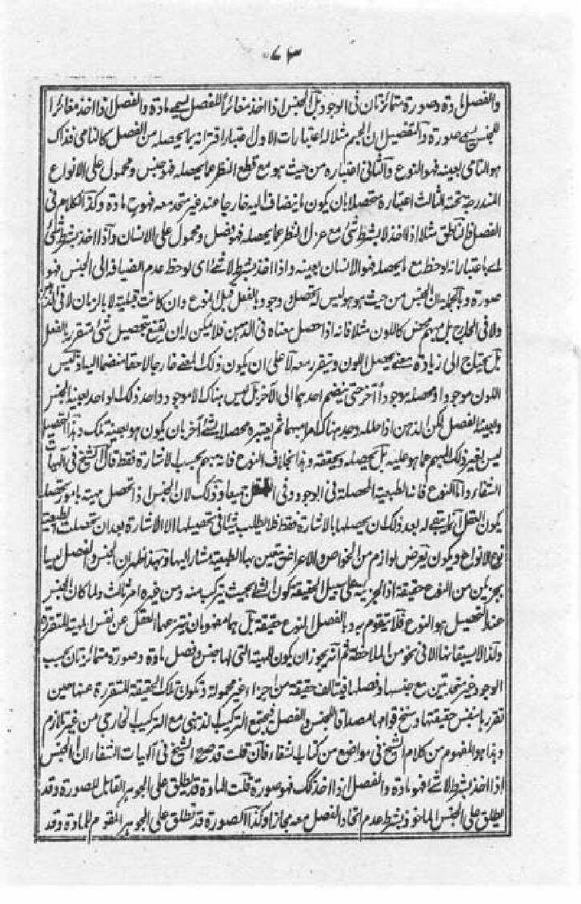 ٧٣
والفصل مادة وصورة متمائزتان فى الوجود بل الجنس اذا اخذ مغائرا للفصل يسمى مادة والفصل اذا اخذ مغائرا
للجنس يسمى صورة والتفصيل ان الجسم مثلا له اعتبارات الاول اعتباره اقترانه بما يحصله من الفصل كالنامى فذاك
هو النامى بعينه فهو النوع والثانى اعتباره من حيث هو مع قطع النظر عما يحصله فهو جنس ومحمول على الانواع
المندرجة تحته الثالث اعتباره متحصلا بان يكون ما ينضاف اليه خارجا عنه غير متحد معه فهو مادة وكذا الكلام فى
الفصل فالناطق مثلا اذا اخذ لا بشرط شئ مع عزل النظر عما يحصله فهو فصل ومحمول على الانسان واذا اخذ بشرط شئ
اى باعتبار انه لوحظ مع ما يحصله فهو الانسان بعينه واذا اخذ بشرط لا شئ اى لوحظ عدم انضيافه الى الجنس فهو
صورة وبالجملة ان الجنس من حيث هو هو ليس له تحصل وجود بالفعل قبل النوع وان كانت قبلية لا بالزمان لا فى الذهن
ولا فى الخارج بل مبهم محض كاللون مثلا فانه اذا حصل معناه فى الذهن فلا يمكن له ان يقنع بتحصيل شئ متقرر بالفعل
بل يحتاج الى زيادة معنى يحصل اللون ويتقرر معه لا على ان يكون ذلك المعنى خارجا لاحقا منضما اليه اذ ليس
اللون موجودا ومحصله موجودا آخر حتى ينضم احدهما الى الآخر بل ليس هناك الا موجود واحد ذلك الواحد بعينه الجنس
وبعينه الفصل لكن الذهن اذا حلله وجد هناك امرا مبهما ثم يعتبره محصلا بشئ آخر بان يكون هو بعينه ذلك وهذا التحصيل
ليس بغير ذلك المبهم عما هو عليه بل يحصله ويحققه وهذا بخلاف النوع فانه مبهم بحسب الاشارة فقط قال الشيخ فى آلهيات
الشفاء واما النوع فانه الطبيعة المحصلة فى الوجود وفى العقل جميعا وذلك لان الجنس اذا تحصل مهيته بامور تحصله
يكون العقل انما ينبغى له بعد ذلك ان يحصلها بالاشارة فقط فلا يطلب شيئا فى تحصيلها الا الاشارة بعد ان تحصلت الطبيعة
نوع الانواع ويكون تعرض لوازم من الخواص والاعراض تتعين بها الطبيعة مشارا اليها وبهذا ظهر ان الجنس والفصل ليسا
بجزئين من النوع حقيقة اذ الجزئية على سبيل الحقيقة كون الشئ بحيث يتركب منه ومن غيره امر ثالث ولما كان الجنس
عند التحصيل هو النوع فلا يتقوم به وبالفصل النوع حقيقة بل هما مفهومان ينتزعهما العقل عن نفس المهية المتقررة
ولذا لا يسبقانها الا فى نحو من الملاحظة ثم انه يجوز ان يكون للمهية التى لها جنس وفصل مادة وصورة متمائزتان بحسب
الوجود غير متحدتين مع جنسها وفصلها فيتألف حقيقة من اجزاء غير محمولة وتكون تلك الحقيقة المتقررة عنها حين
تقررها بنفس حقيقتها وسنخ قوامها مصداقا للجنس والفصل فيجتمع التركيب الذهنى مع التركيب الخارجى من غير تلازم
وهذا هو المفهوم من كلام الشيخ فى مواضع من كتاب الشفاء فان قلت قد صرح الشيخ فى آلهيات الشفاء ان الجنس
اذا اخذ بشرط لا شئ فهو مادة والفصل اذا اخذ كذلك فهو صورة قلت المادة قد تطلق على الجوهر القابل للصورة وقد
تطلق على الجنس الماخوذ بشرط عدم اتحاد الفصل معه مجازا وكذا الصورة قد تطلق على الجوهر المقوم للمادة وقد